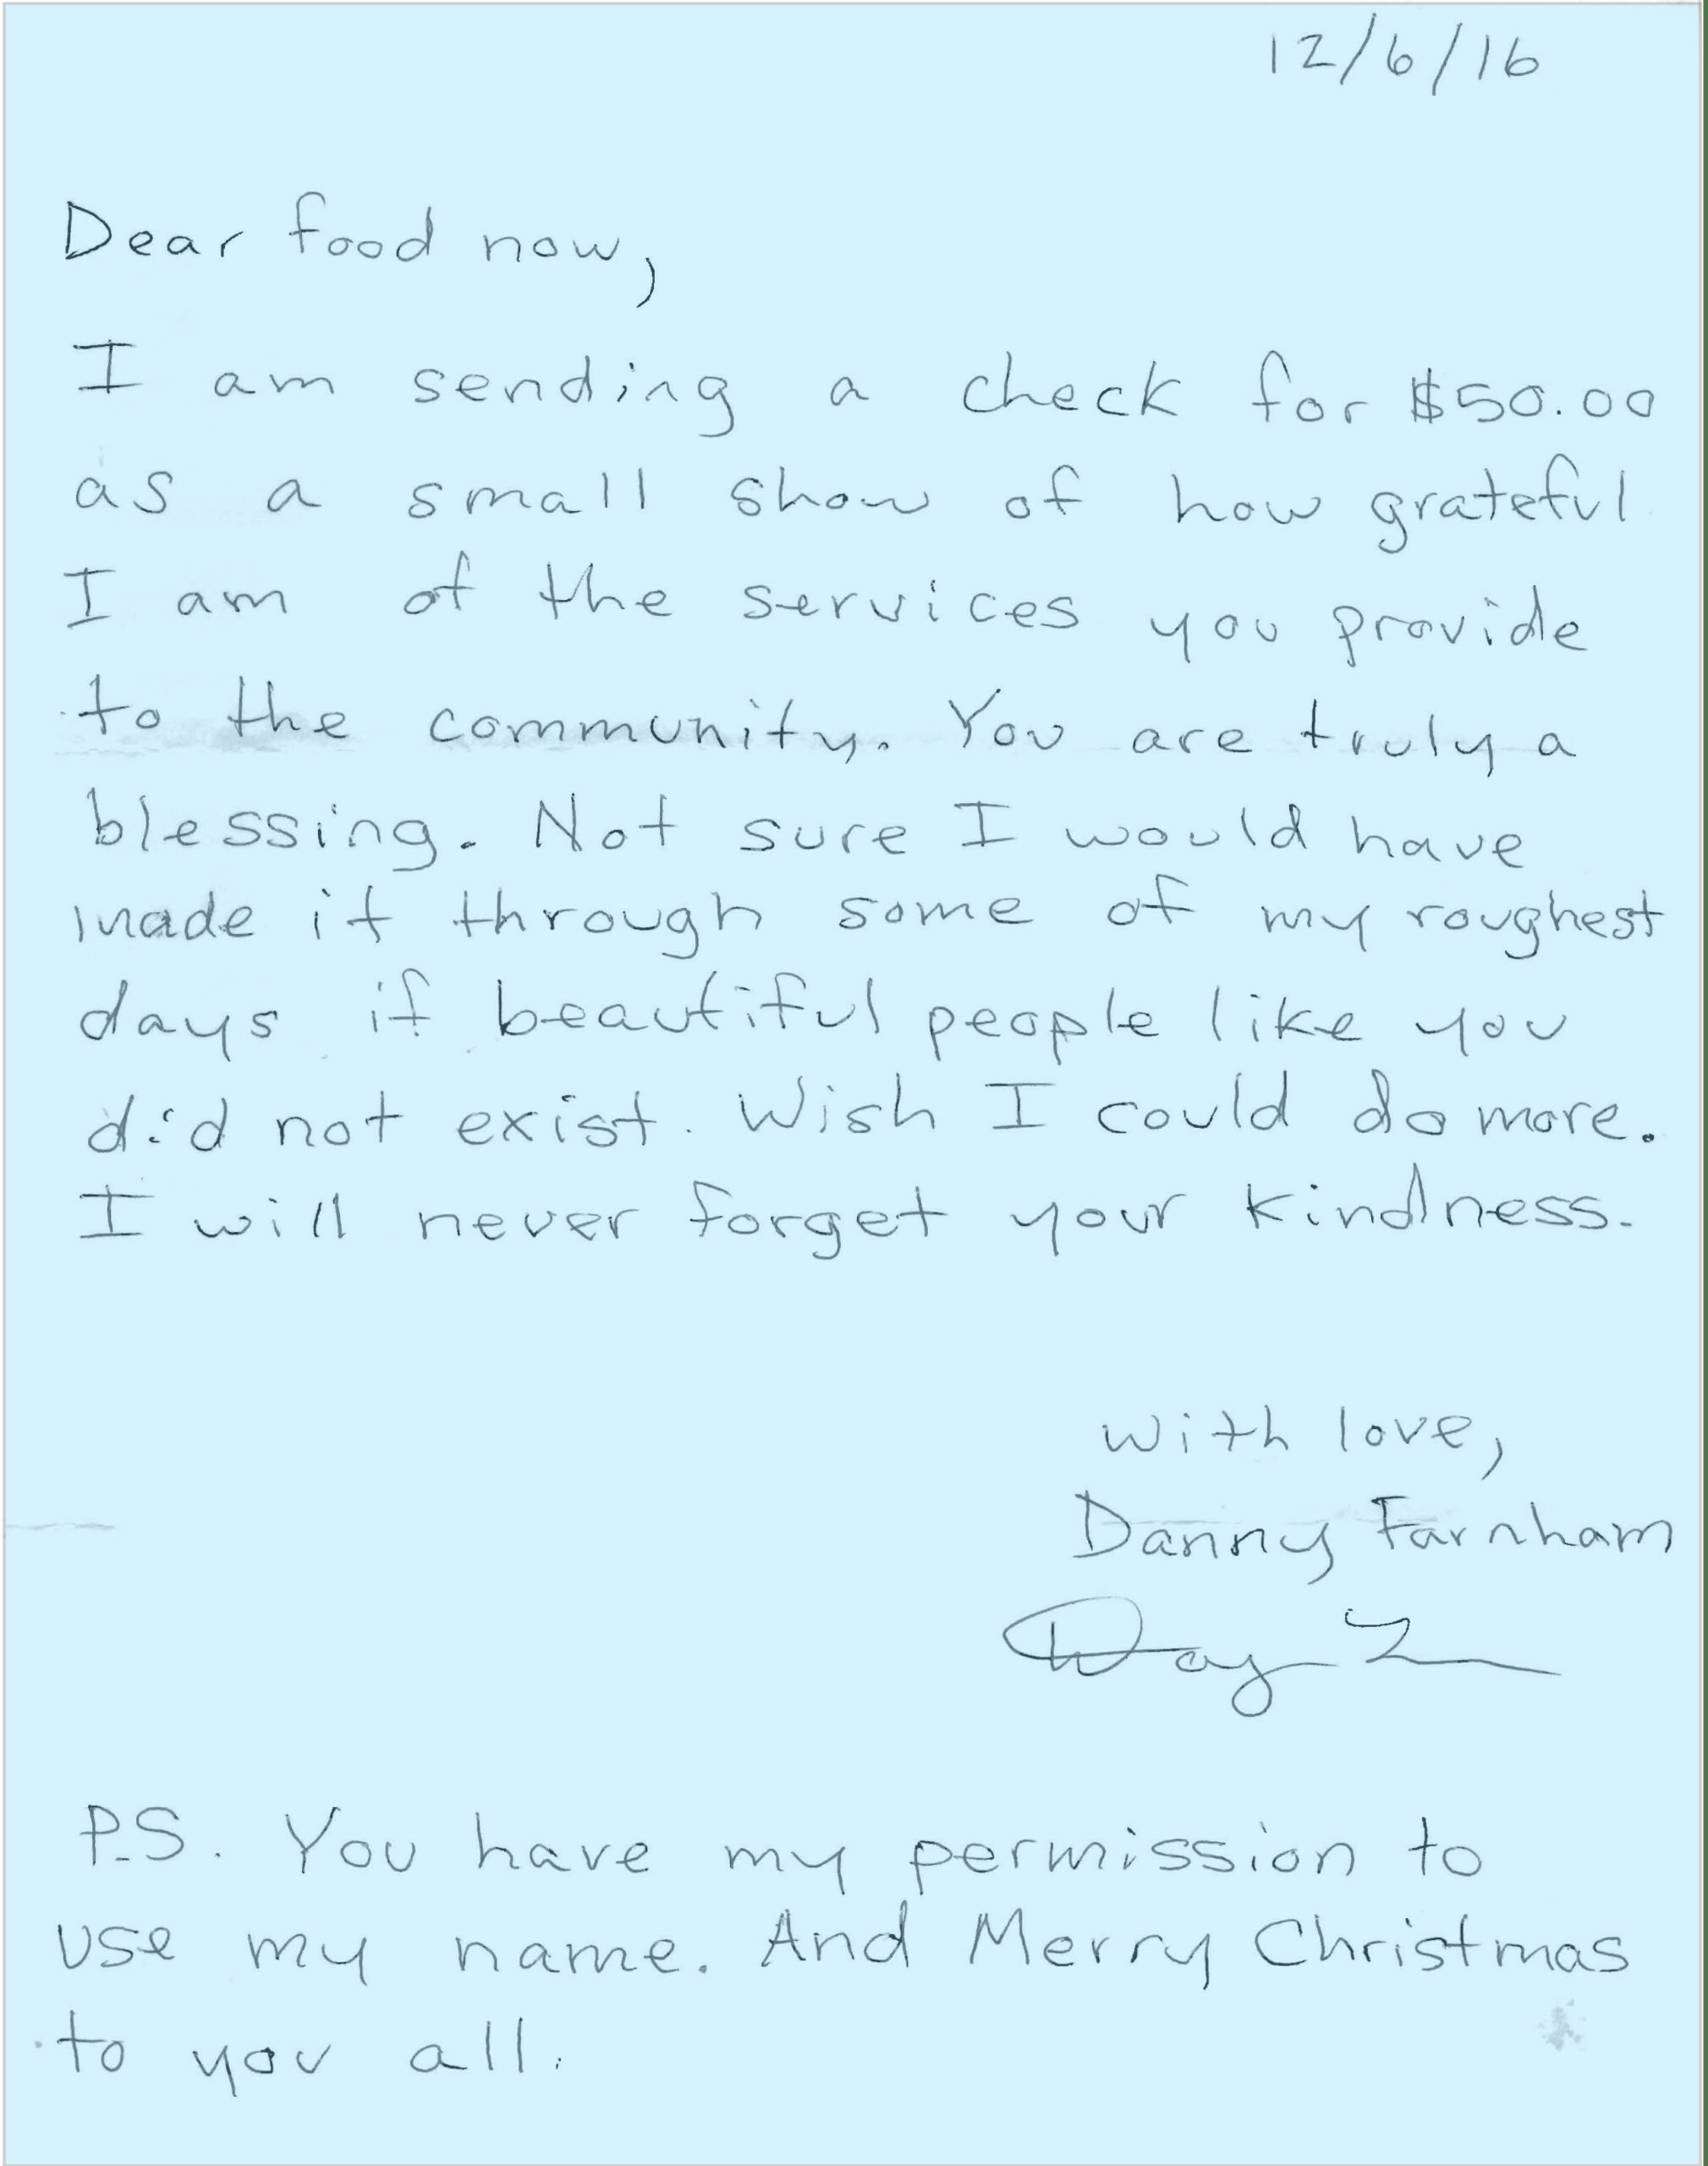 12/6/16
Dear food now,
I am sending a check for $50.00
as a small show of how grateful
I am of the services you provide
to the community. You are truly a
blessing. Not sure I would have
made it through some of my roughest
days if beautiful people like you
did not exist. Wish I could do more.
I will never forget your kindness.
with love,
Danny Farnham
P.S. You have my permission to
use my name. And Merry Christmas
to you all.